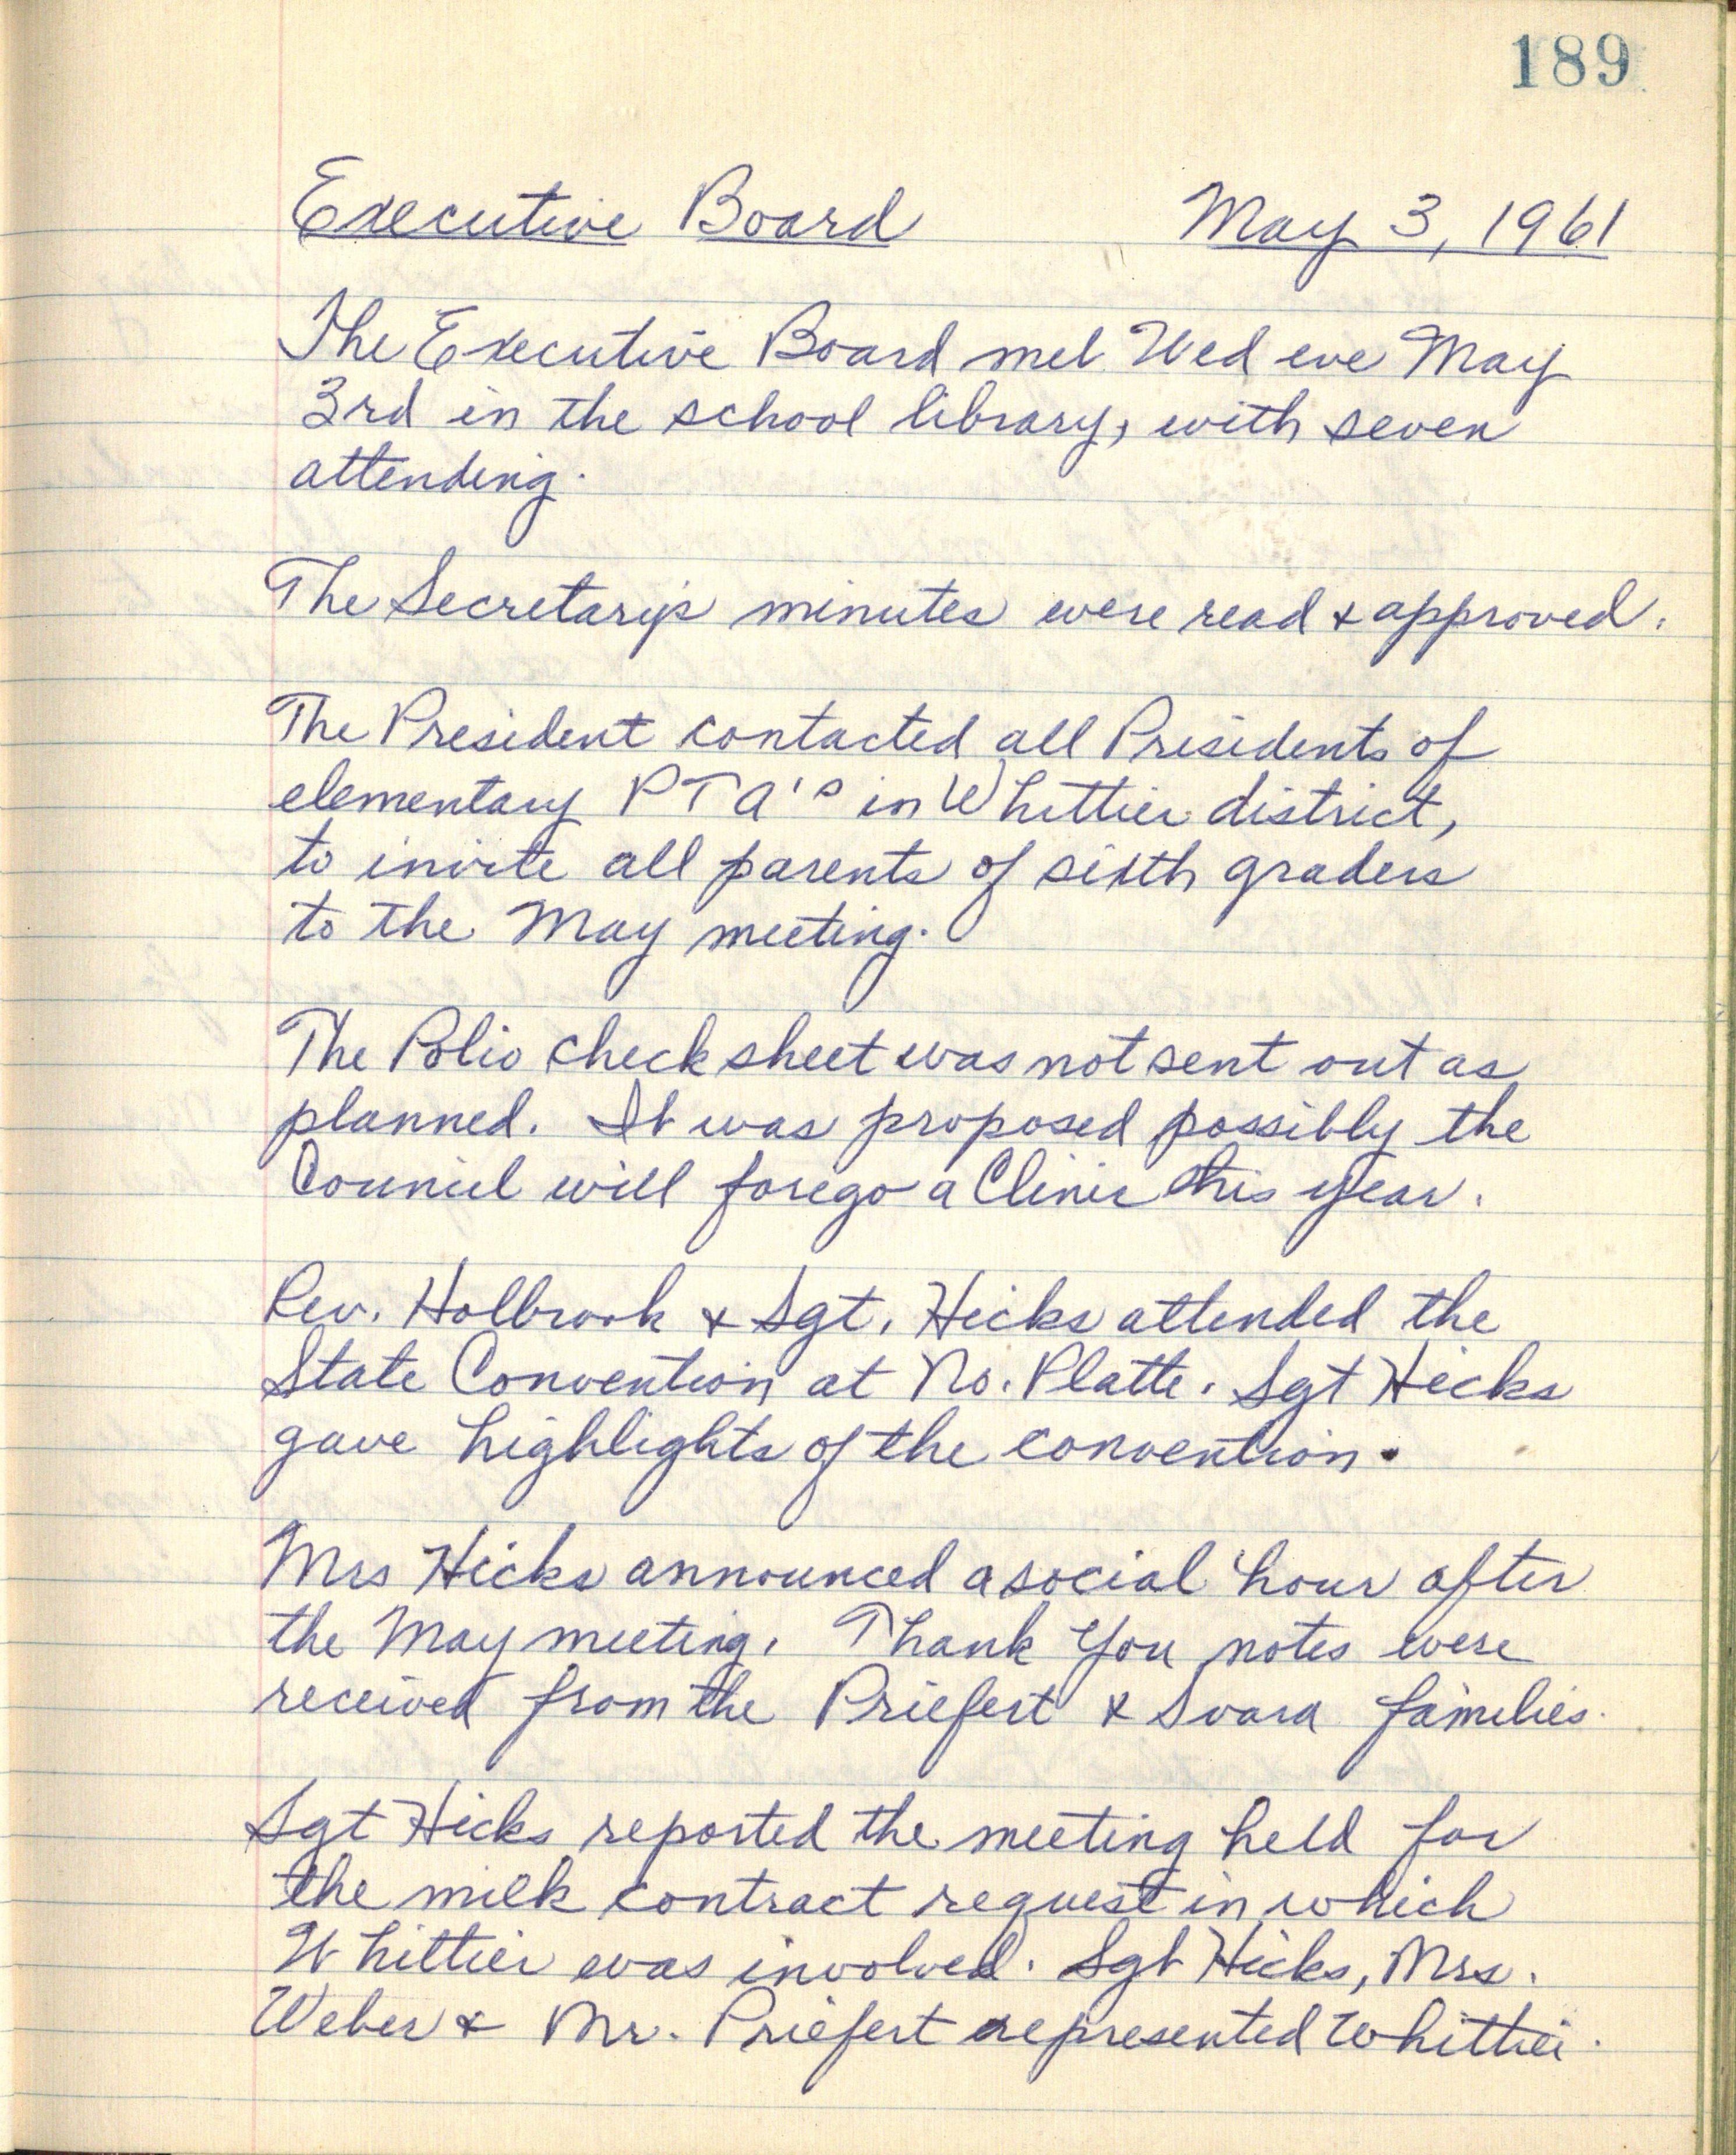 189
Executive Board May 3, 1961
The Executive Board met Wed eve May
3rd in the school library, with seven
attending.
The Secretary's minutes were read & approved.
The President contacted all Presidents of
elementary PTA's in Whittier district,
to invite all parents of sixth graders
to the May meeting.
The Polio check sheet was not sent out as
planned. It was proposed possibly the
Council will forego a Clinic this year.
Rev. Holbrook & Sgt. Hicks attended the
State Convention at No. Platte. Sgt Hicks
gave highlights of the convention.
Mrs Hicks announced a social hour after
the May meeting. Thank You notes were
received from the Priefert & Svara families.
Sgt Hicks reported the meeting held for
the milk contract request in which
Whittier was involved. Sgt Hicks, Mrs.
Weber & Mr. Priefert represented Whittier.